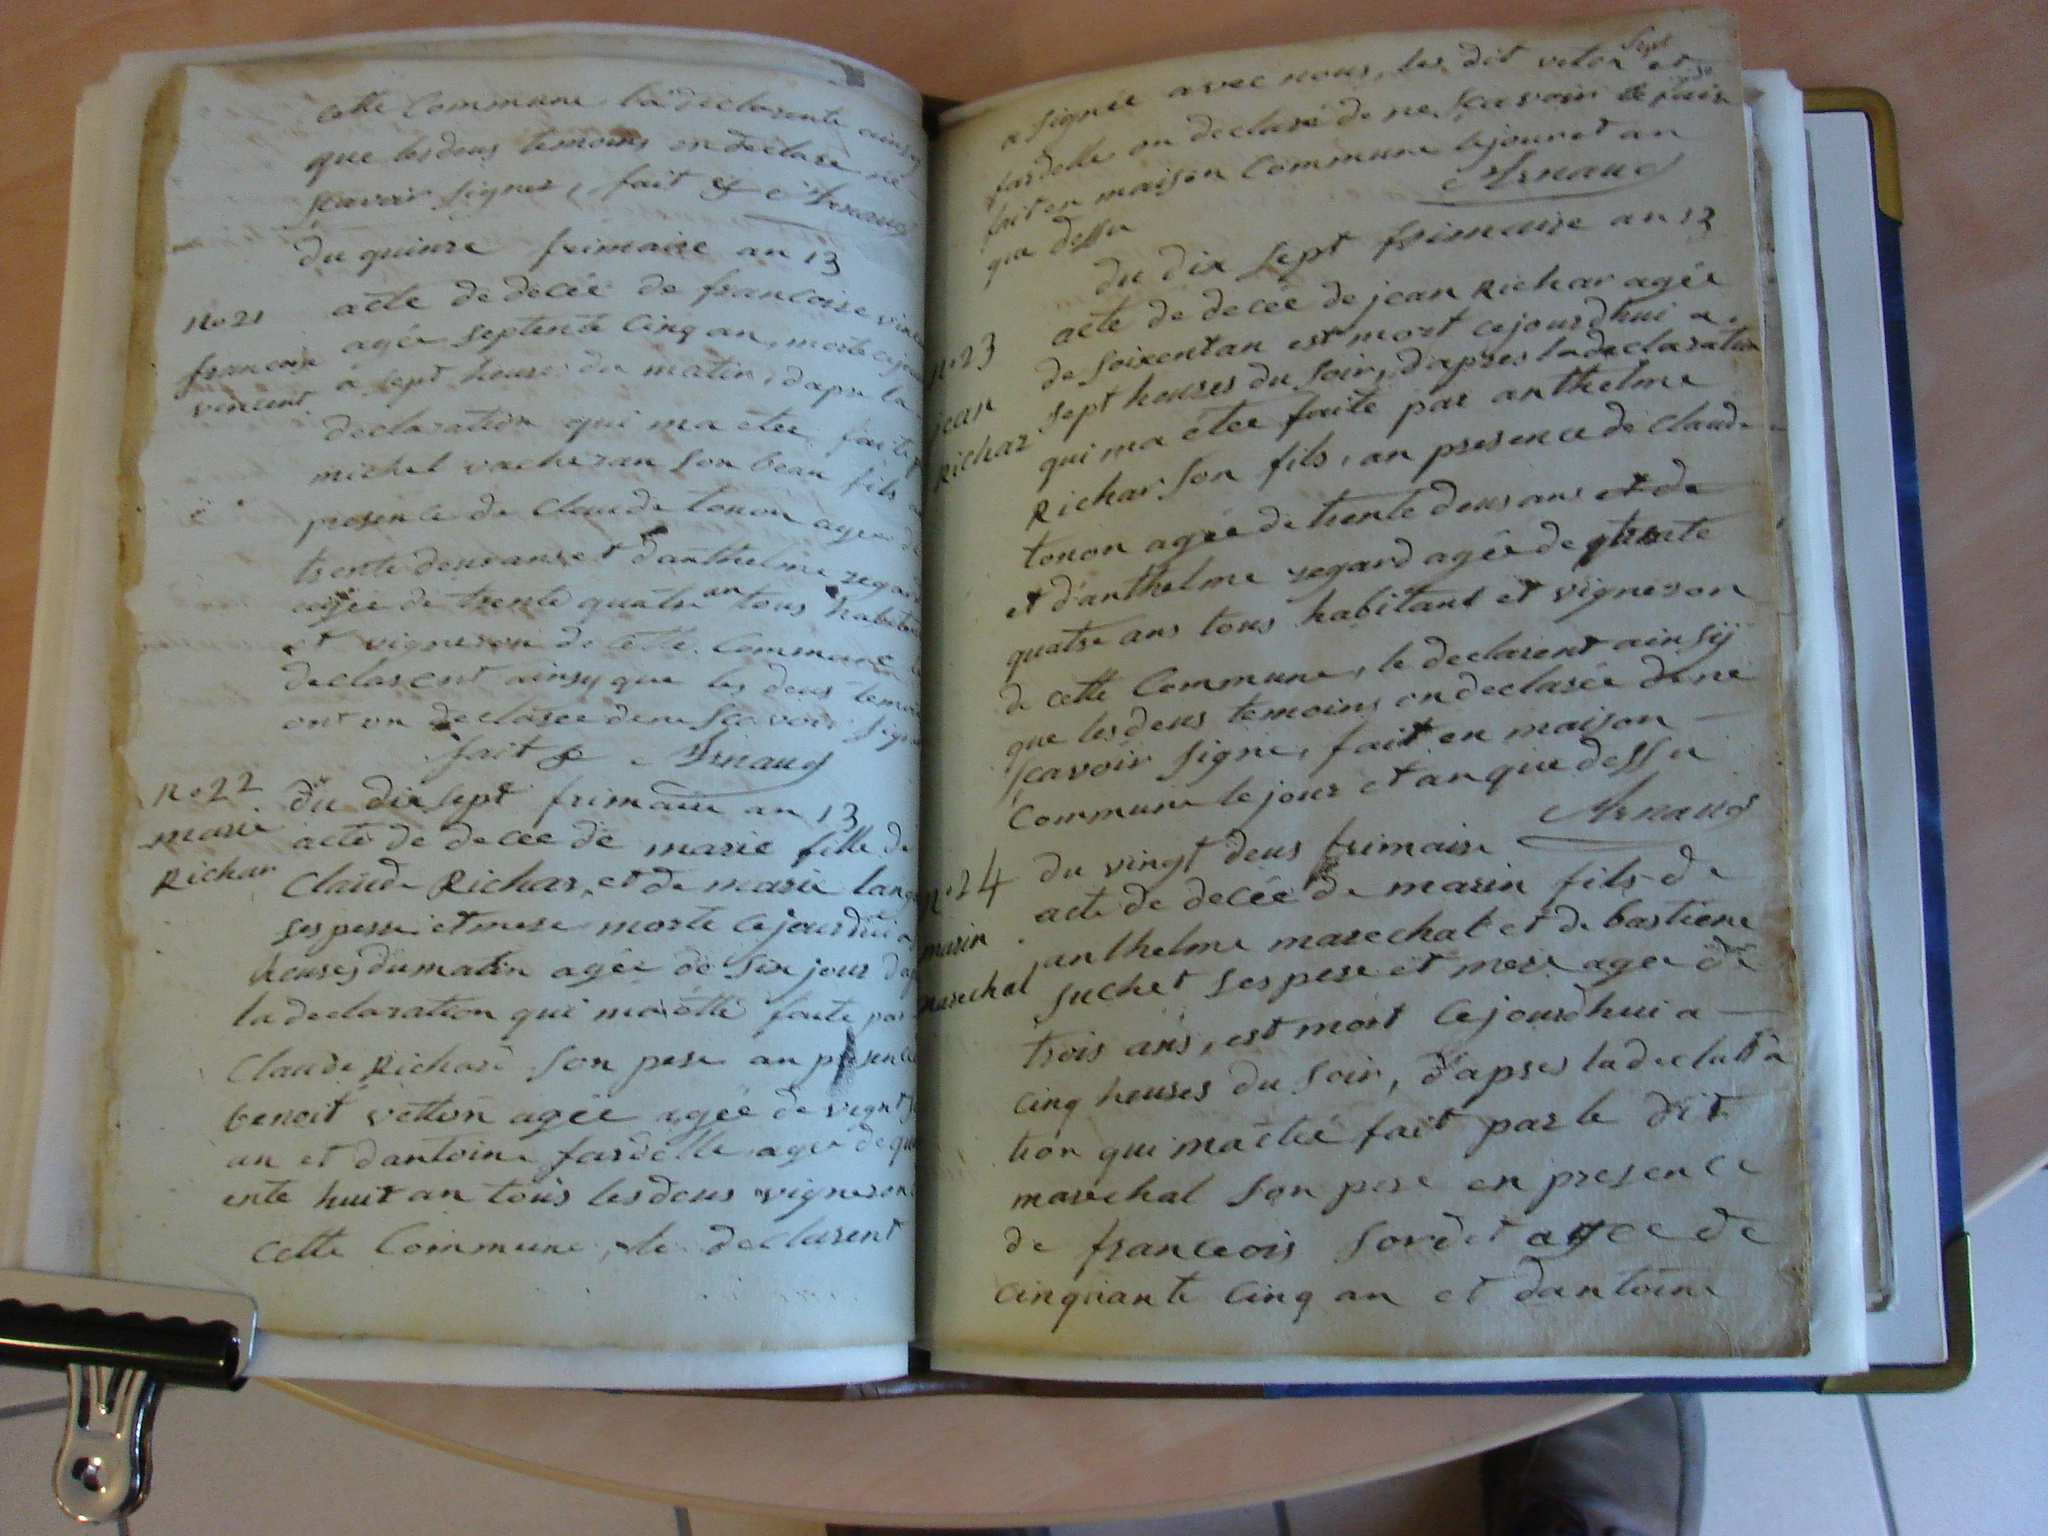 cette Commune la declarente ainsy
que les deus temoins on declare ne
scavoir signer, fait & Arnaud
du quinze frimaire an 13
no 21
francoise
vincent
acte de decée de francoise vincent
agée septente cinq an, morte cejour
a sept heures du matin, dapre la
declaration qui ma etee faite
michel vacheran son beau fils
presence de Claude tonon agee de
trente deus ans et danthelme regard
agée de trente quatre an tous habitans
et vigneron de cette Commune
declarent ainsy que les deus temoins
ont on declasee dene scavoir signe
fait & Arnaud
no 22
marie
Richar
du dix sept frimaire an 13
acte de decée de marie fille de
Claude Richar, et de marie
ses perre et mere morte cejourdui a
heures du matin agée de six jour
la declaration qui ma étté faite par
Claude Richard son pere an presence
benoit vetton agée agée de vignt
an et dantoine fardelle agée de
ente huit an tous les deus vigneron
cette Commune, le declarent
a signée avec nous, les dit veton et
fardelle on declaré de ne scavoir le faire
fait en maison Commune le jour et an
que dessu Arnaud
du dix sept frimaire an 13
no 23
jean
Richar
acte de decée de jean Richar agée
de soixentan est mort cejourdhui a
sept heures du soir, dapres la declaration
qui ma étée faite par anthelme
Richar son fils, an presence de Claude
tonon agée de trente deus ans et de
et d'anthelme regard agée de trente
quatre ans tous habitant et vigneron
de cette Commune, le declarent ainsÿ
que les deus temoins on declarée de ne
scavoir signe, fait en maison
Commune le jour et an que dessu
Arnaud
no 24
marin
marechal
du vingt deus frimaire
acte de decée de marin fils de
anthelme marechal et de bastiene
suchet ses pere et mere agee de
trois ans, est mort cejourdhui a
cinq heures du soir, d'apres la declara
tion qui ma étée fait par le dit
marechal son pere en presence
de franceois sordet agee de
cinquante cinq an et dantoine